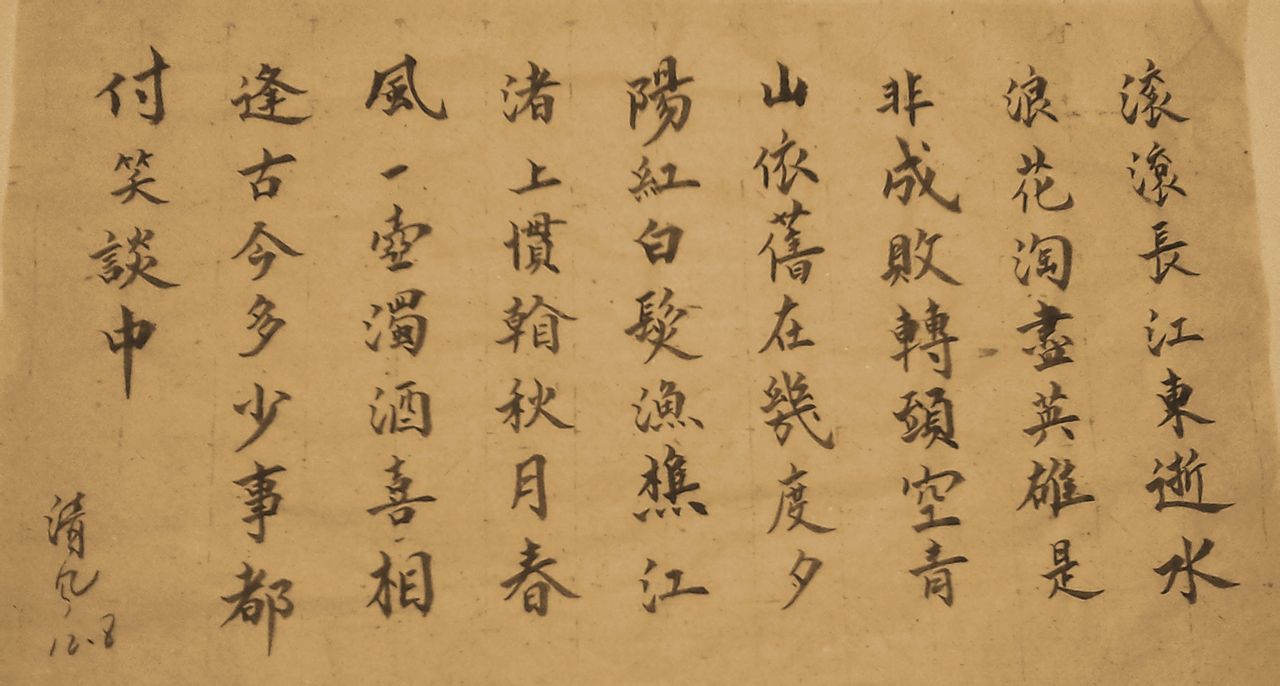 滚滚長江東逝水
浪花淘盡英雄是
非成敗轉頭空青
山依舊在幾度夕
陽紅白髮漁樵江
渚上慣看秋月春
風一壺濁酒喜相
逢古今多少事都
付笑談中
清风
12.8